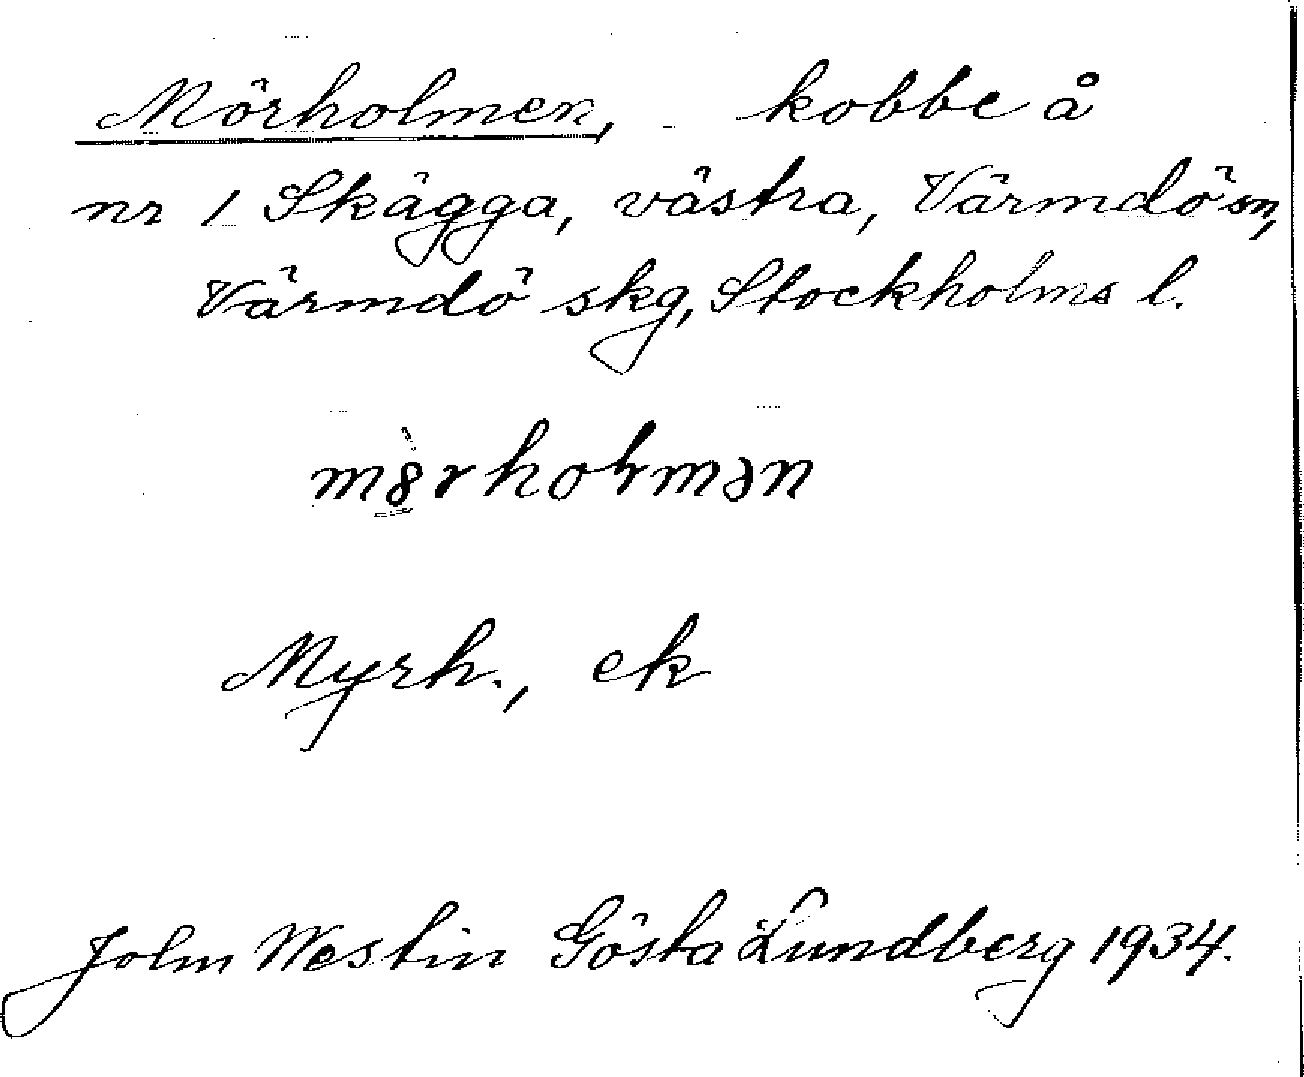 Mörholmen, kobbe å
nr 1 Skägga, västra, Värmdö sn,
Värmdö skg, Stockholms l.
Myrh., ek
John Westin Gösta Lundberg 1934.